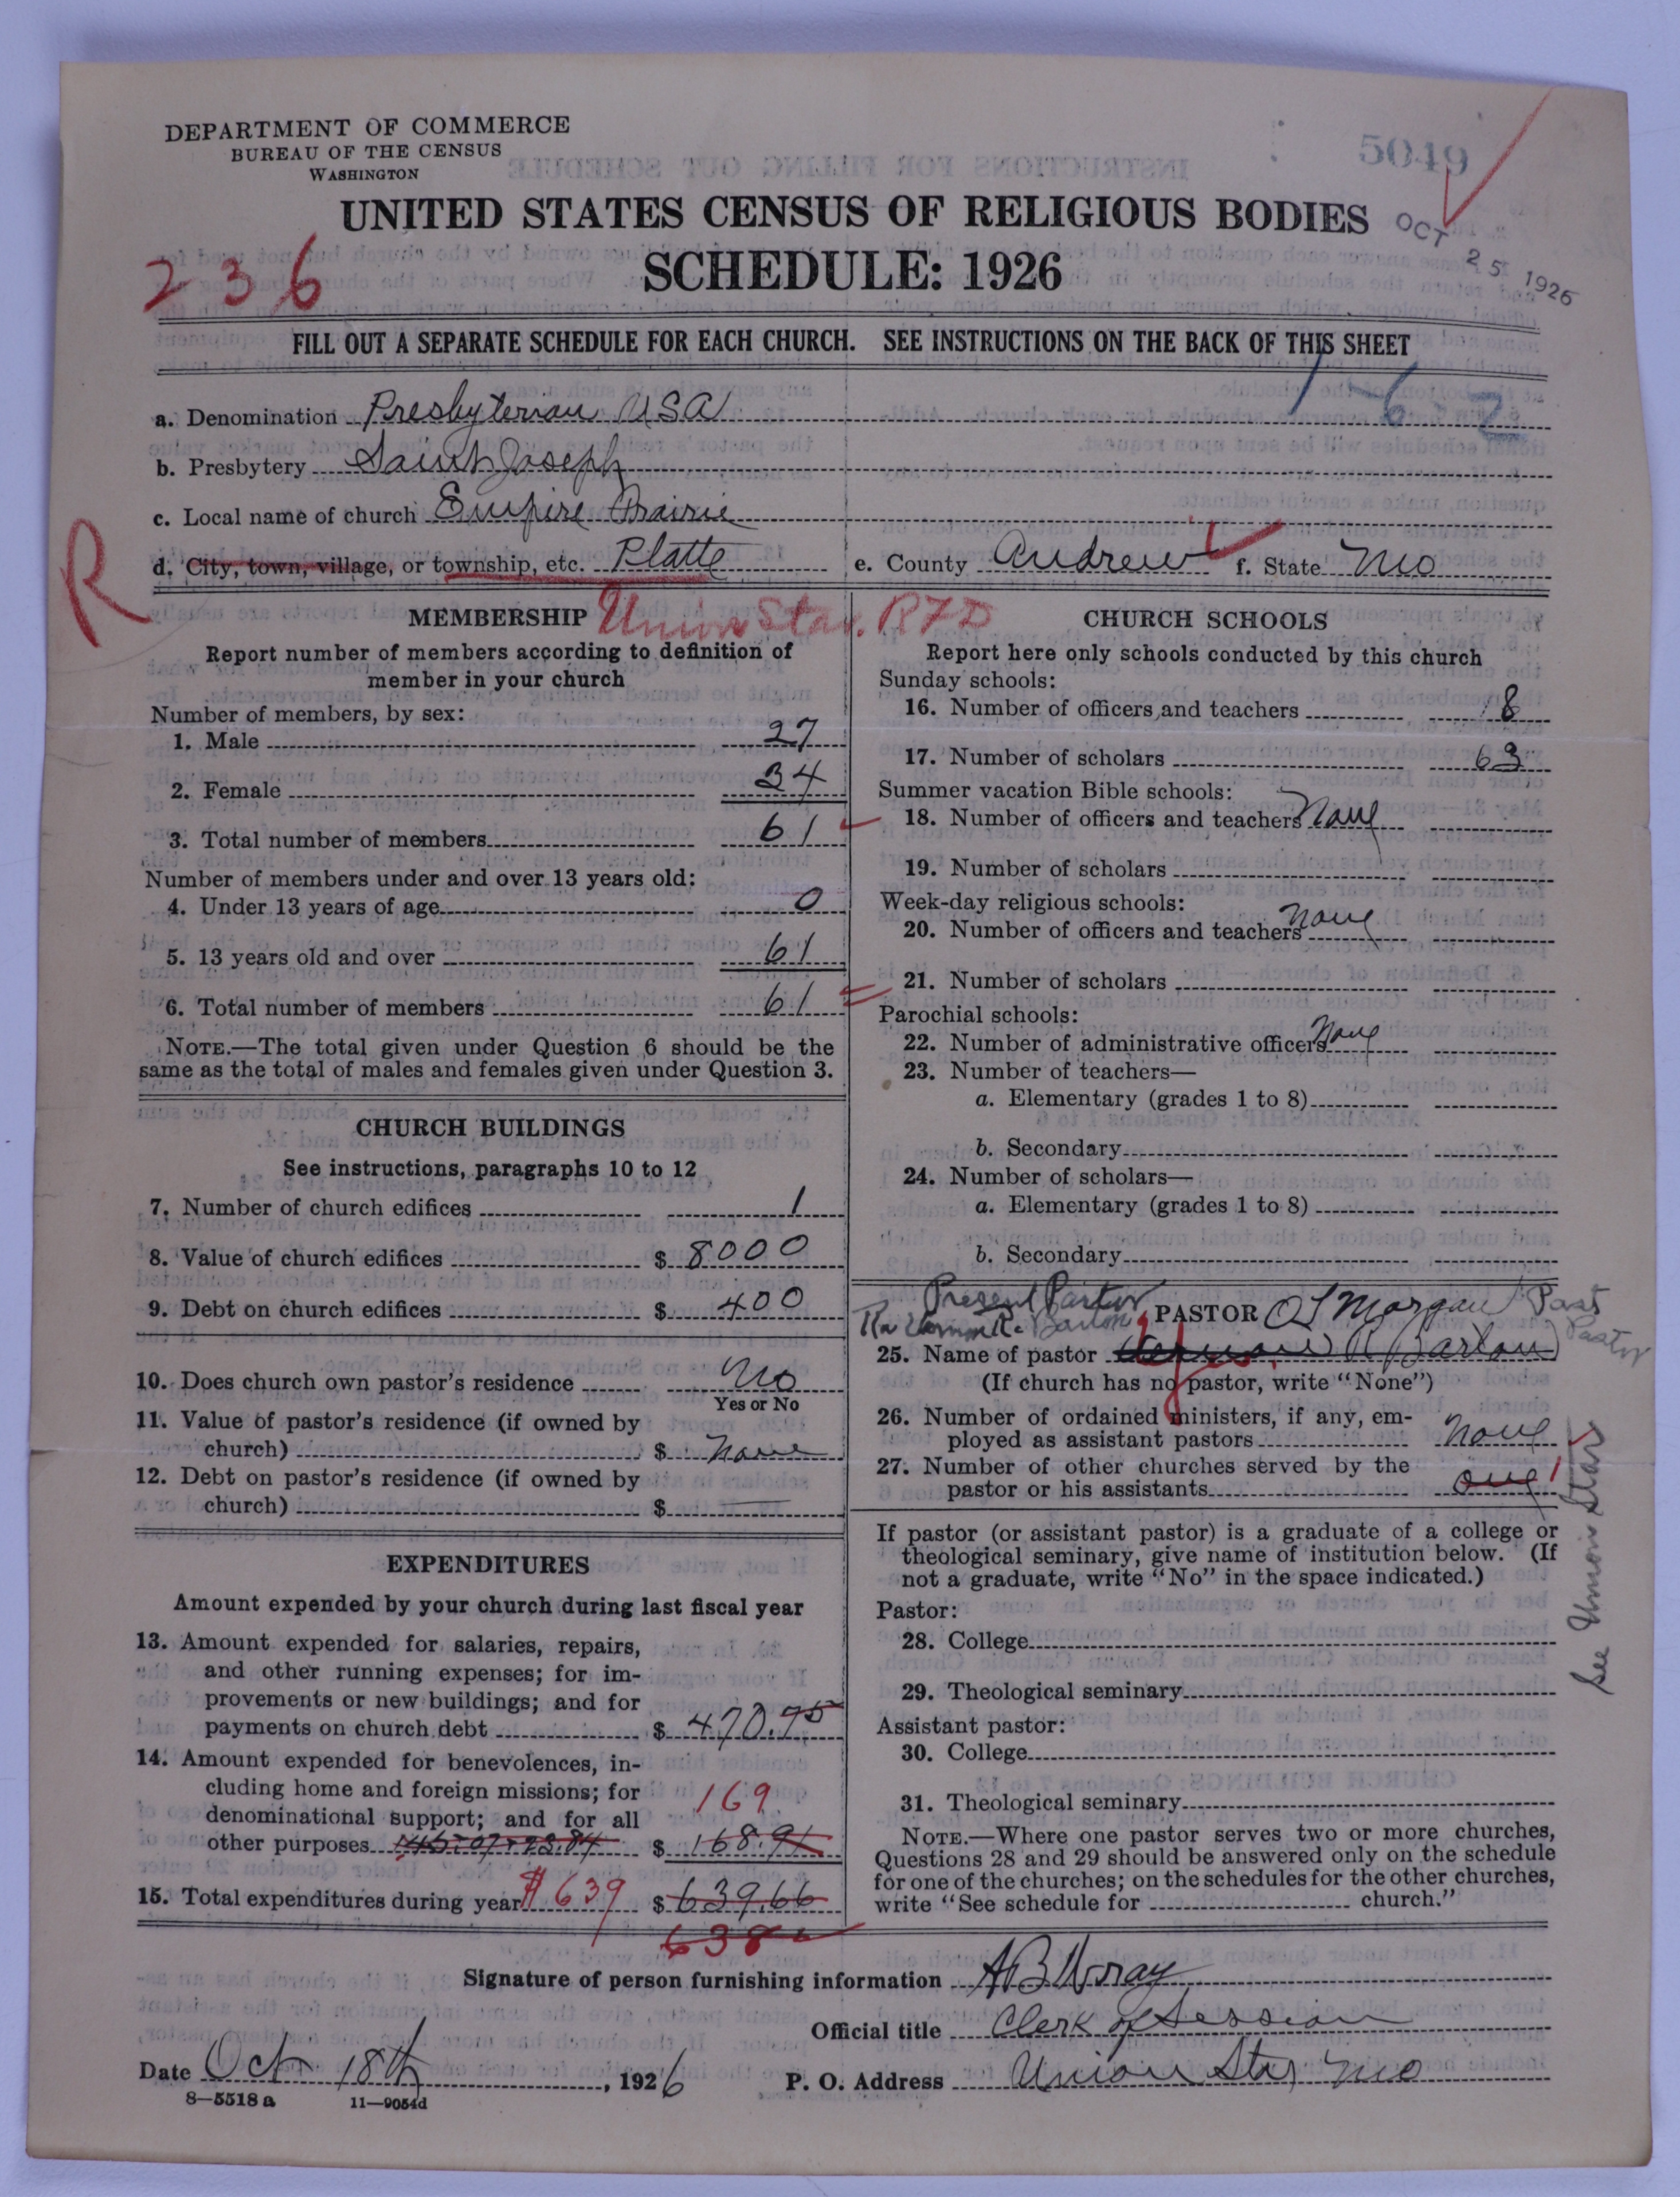 DEPARTMENT OF COMMERCE
BUREAU OF THE CENSUS
WASHINGTON
5049
UNITED STATES CENSUS OF RELIGIOUS BODIES
OCT 25 1926
236
SCHEDULE: 1926
FILL OUT A SEPARATE SCHEDULE FOR EACH CHURCH. SEE INSTRUCTIONS ON THE BACK OF THIS SHEET
1-6-2
a. Denomination Presbyterian USA
b. Presbytery Saint Joseph
c. Local name of church Empire Prairie
R
d. City, town, village, or township, etc. Platte e. County Andrew f. State Mo
Union Star. RFD
MEMBERSHIP
Report number of members according to definition of
member in your church
Number of members, by sex:
1. Male 27
2. Female 34
3. Total number of members 61
Number of members under and over 13 years old:
4. Under 13 years of age 0
5. 13 years old and over 61
6. Total number of members 61
NOTE.—The total given under Question 6 should be the
same as the total of males and females given under Question 3.
CHURCH BUILDINGS
See instructions, paragraphs 10 to 12
7. Number of church edifices 1
8. Value of church edifices $ 8000
9. Debt on church edifices $ 400
10. Does church own pastor's residence No
Yes or No
11. Value of pastor's residence (if owned by
church) $ None
12. Debt on pastor's residence (if owned by
church) $
EXPENDITURES
Amount expended by your church during last fiscal year
13. Amount expended for salaries, repairs,
and other running expenses; for im-
provements or new buildings; and for
payments on church debt $ 470.75
14. Amount expended for benevolences, in-
cluding home and foreign missions; for
169
denominational support; and for all
other purposes 145.07+23.84 $ 168.91
15. Total expenditures during year $639 $ 639.66
638
CHURCH SCHOOLS
Report here only schools conducted by this church
Sunday schools:
16. Number of officers and teachers 8
17. Number of scholars 63
Summer vacation Bible schools:
18. Number of officers and teachers None
19. Number of scholars
Week-day religious schools:
20. Number of officers and teachers None
21. Number of scholars
Parochial schools:
22. Number of administrative officers None
23. Number of teachers—
a. Elementary (grades 1 to 8)
b. Secondary
24. Number of scholars—
a. Elementary (grades 1 to 8)
b. Secondary
Present Pastor
PASTOR O L Morgan Past Pastor
R. Barton
25. Name of pastor R Barton
(If church has no pastor, write "None")
26. Number of ordained ministers, if any, em-
ployed as assistant pastors None
27. Number of other churches served by the
pastor or his assistants one 1
See Union Star
If pastor (or assistant pastor) is a graduate of a college or
theological seminary, give name of institution below. (If
not a graduate, write "No" in the space indicated.)
Pastor:
28. College
29. Theological seminary
Assistant pastor:
30. College
31. Theological seminary
NOTE.—Where one pastor serves two or more churches,
Questions 28 and 29 should be answered only on the schedule
for one of the churches; on the schedules for the other churches,
write "See schedule for church."
Signature of person furnishing information A B Wray
Official title Clerk of Session
Date Oct 18th, 1926 P. O. Address Union Star Mo
8—5518 a 11—9054d